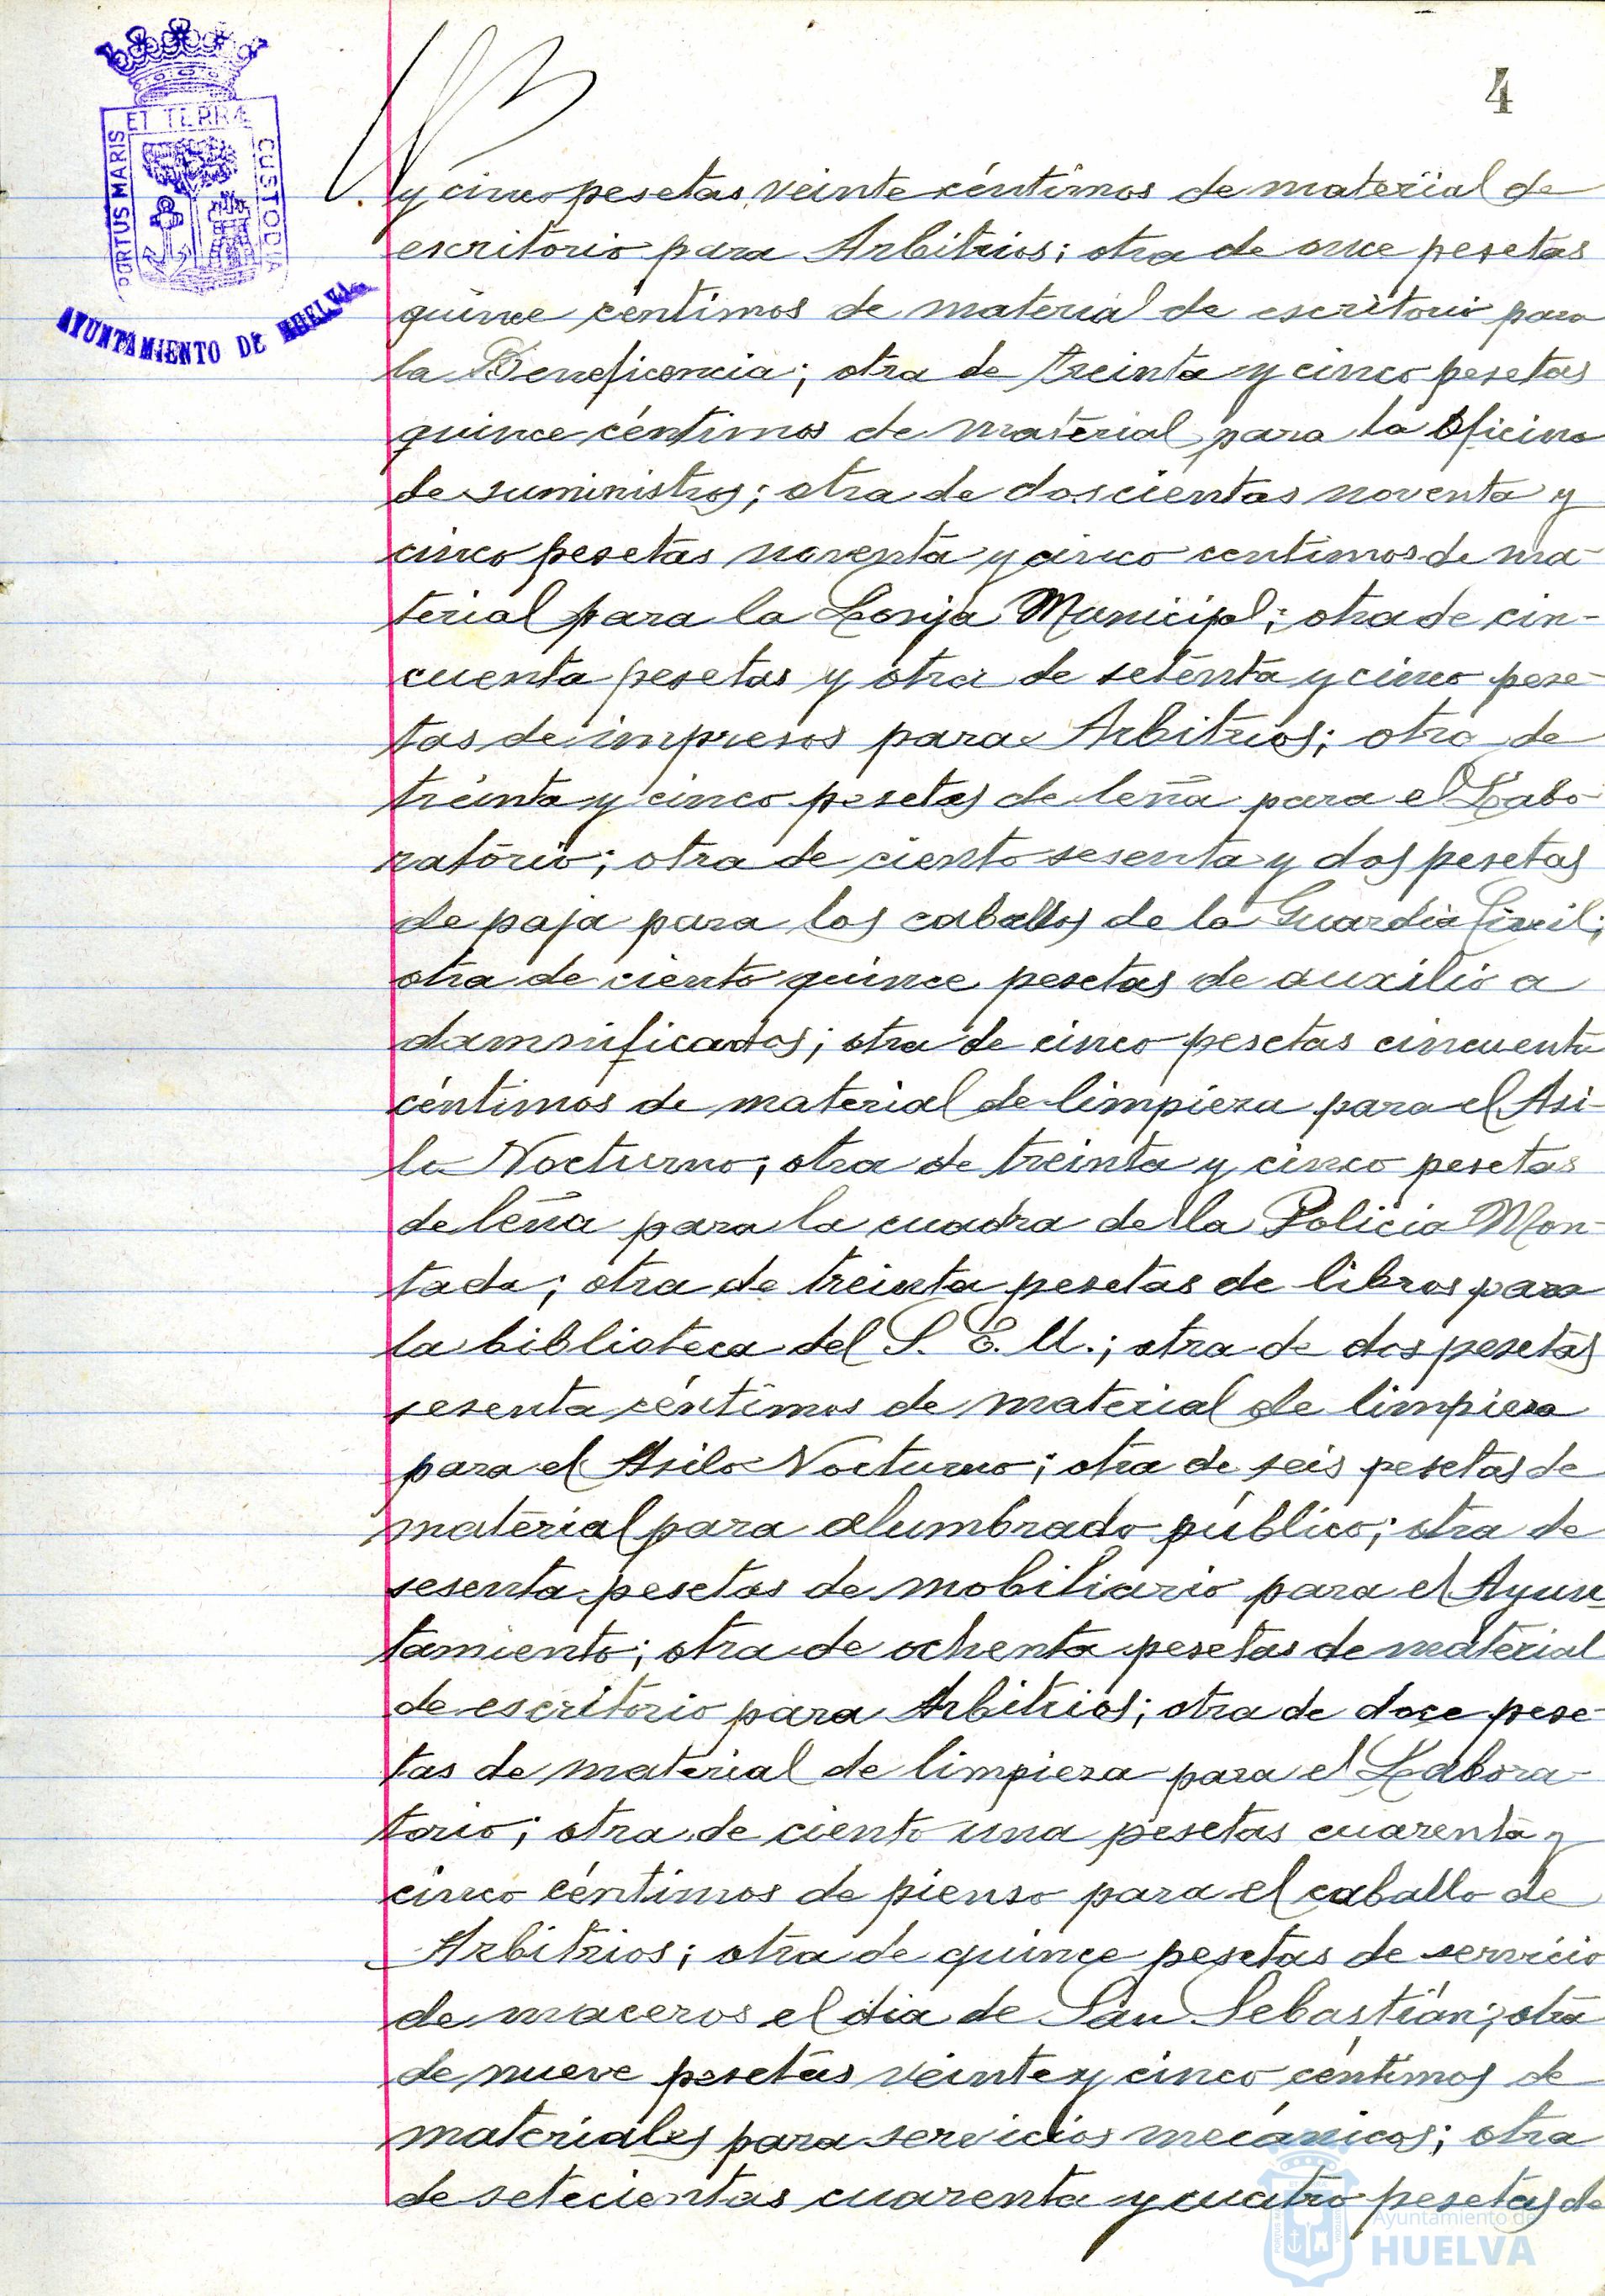 4
PORTUS MARIS
ET TERRÆ
CUSTODIA
AYUNTAMIENTO DE HUELVA
y cinco pesetas veinte céntimos de material de
escritorio para Arbitrios; otra de once pesetas
quince céntimos de material de escritorio para
la Beneficencia; otra de treinta y cinco pesetas
quince céntimos de material para la Oficina
de suministros; otra de doscientas noventa y
cinco pesetas noventa y cinco centimos de ma-
terial para la Lonja Municipal; otra de cin-
cuenta pesetas y otra de setenta y cinco pese-
tas de impresos para Arbitrios; otra de
treinta y cinco pesetas de leña para el Labo-
ratorio; otra de ciento sesenta y dos pesetas
de paja para los caballos de la Guardia Civil;
otra de ciento quince pesetas de auxilio a
damnificados; otra de cinco pesetas cincuenta
céntimos de material de limpieza para el Asi-
lo Nocturno; otra de treinta y cinco pesetas
de leña para la cuadra de la Policia Mon-
tada; otra de treinta pesetas de libros para
la biblioteca del S. E. U.; otra de dos pesetas
sesenta céntimos de material de limpieza
para el Asilo Nocturno; otra de seis pesetas de
material para alumbrado público; otra de
sesenta pesetas de mobiliario para el Ayun-
tamiento; otra de ochenta pesetas de material
de escritorio para Arbitrios; otra de doce pese-
tas de material de limpieza para el Labora-
torio; otra de ciento una pesetas cuarenta y
cinco céntimos de pienso para el caballo de
Arbitrios; otra de quince pesetas de servicio
de maceros el dia de San Sebastián; otra
de nueve pesetas veinte y cinco céntimos de
materiales para servicios mecánicos; otra
de setecientas cuarenta y cuatro pesetas de
Ayuntamiento de
HUELVA